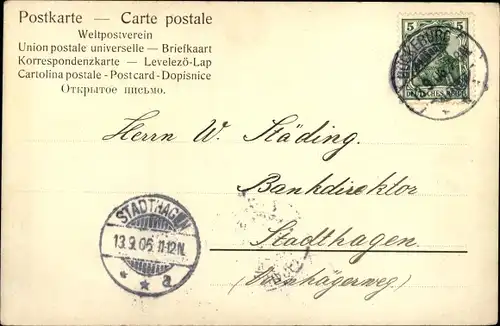 Postkarte — Carte postale
Weltpostverein
Union postale universelle — Briefkaart
Korrespondenzkarte — Levelező-Lap
Cartolina postale - Postcard - Dopisnice
Открытое письмо.
5 5
DEUTSCHES REICH
BÜCKEBURG
Herrn W. Städing.
Bankdirektor
Stadthagen
(Vornhägerweg)
STADTHAGEN
13.9.05. 11-12N.
* * a